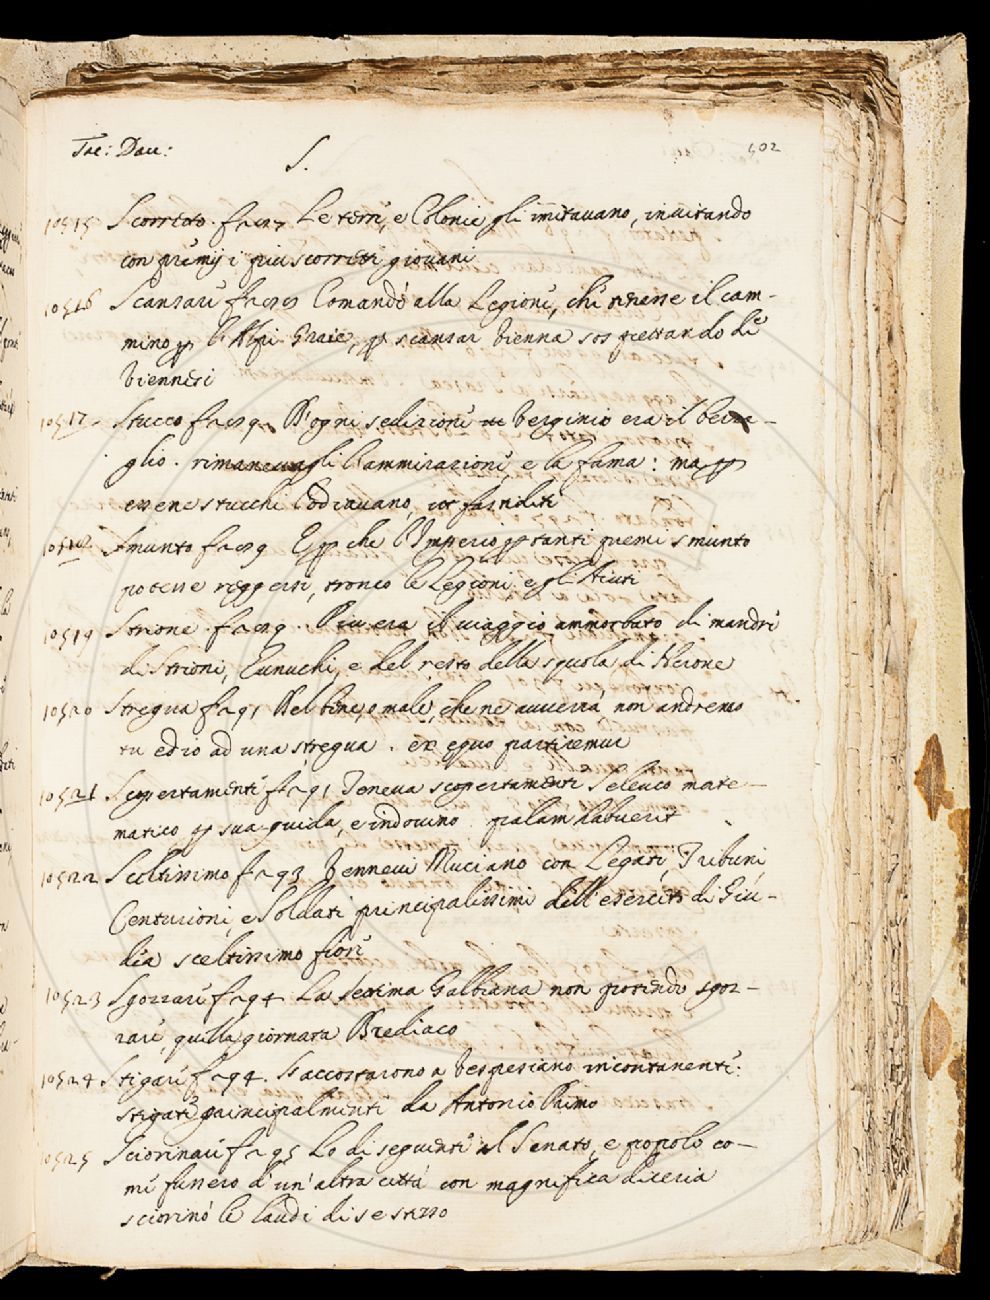 Tac: Dau:
S.
502
10515 Scorretto f 287 Le terre, e Colonie gli imitavano, invitando
con premij i piu scorretti giovani
10516 Scansare f 289 Comandò alla Legione, che tenesse il cam-
mino p l'Alpi Graie, p scansar Vienna sospettando de
Viennesi
10517 Stucco f 289. D'ogni sedizione Verginio era il berza-
glio. rimanevagli l'ammirazione, e la fama: ma p
essene stucchi l'odiavano,
10518 Smunto f 289 E p che l'Imperio p tanti premi smunto
potesse reggersi, tronco le Legioni, e gl'Aiuti
10519 Strione f 289. Piu era il viaggio ammorbato di mandre
di Strioni, Eunuchi, e del resto della squola di Nerone
10520 Stregua f 291 Del bene, o male, che ne avverrà non andremo
tu ed io ad una stregua. ex equo partiemur
10521 Scopertamente f 291 Teneva scopertamente Seleuco mate-
matico p sua guida, e indovino palam habuerit
10522 Sceltissimo f 293 Vennevi Muciano con Legati, Tribuni
Centurioni, e Soldati principalissimi dell'esercito di Giu-
dia sceltissimo fiore
10523 Sgozzare f 294 La Settima Galbiana non potendo sgoz-
zare, quella giornata Brediaco
10524 Stigare f 294. S'accostarono a Vespesiano incontanente:
stigate principalmente da Antonio Primo
10525 Sciorinare f 295 Lo di seguente al Senato, e popolo co-
me fussero d'un'altra città con magnifica diceria
sciorinò le laudi di se stesso